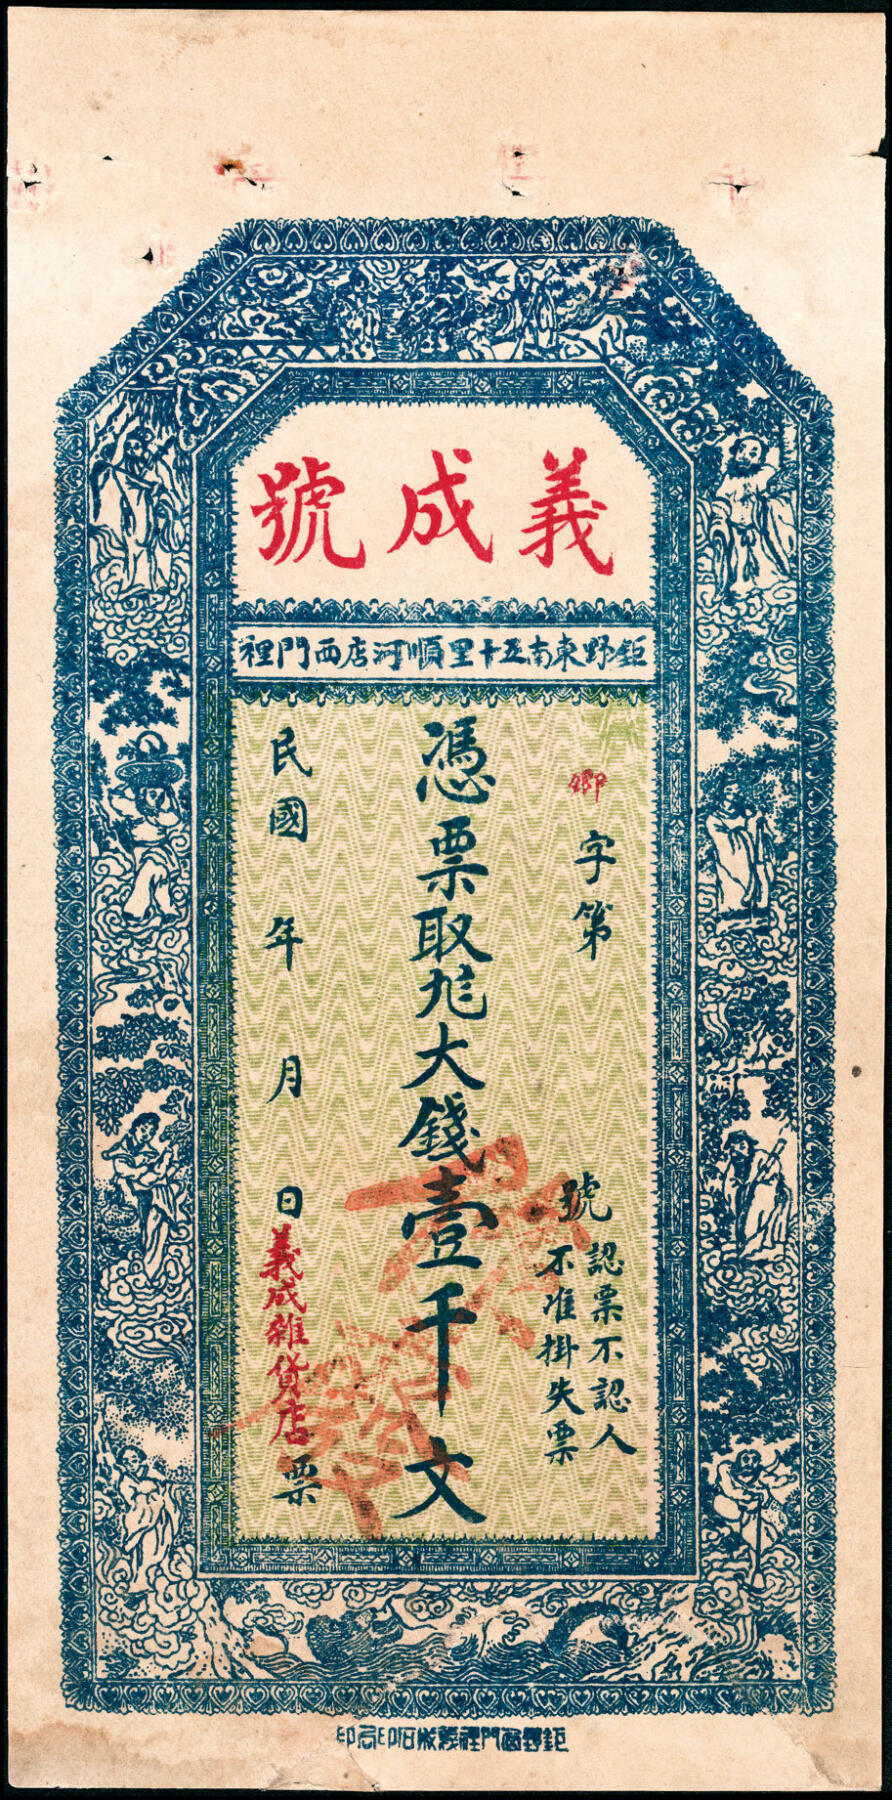 義成號
鉅野東南五十里順河店西門裡
卿字第 號
認票不認人
不准掛失票
憑票取 大錢壹千文
民國 年 月 日義成雜貨店票
鉅野西門裡義成石印局印